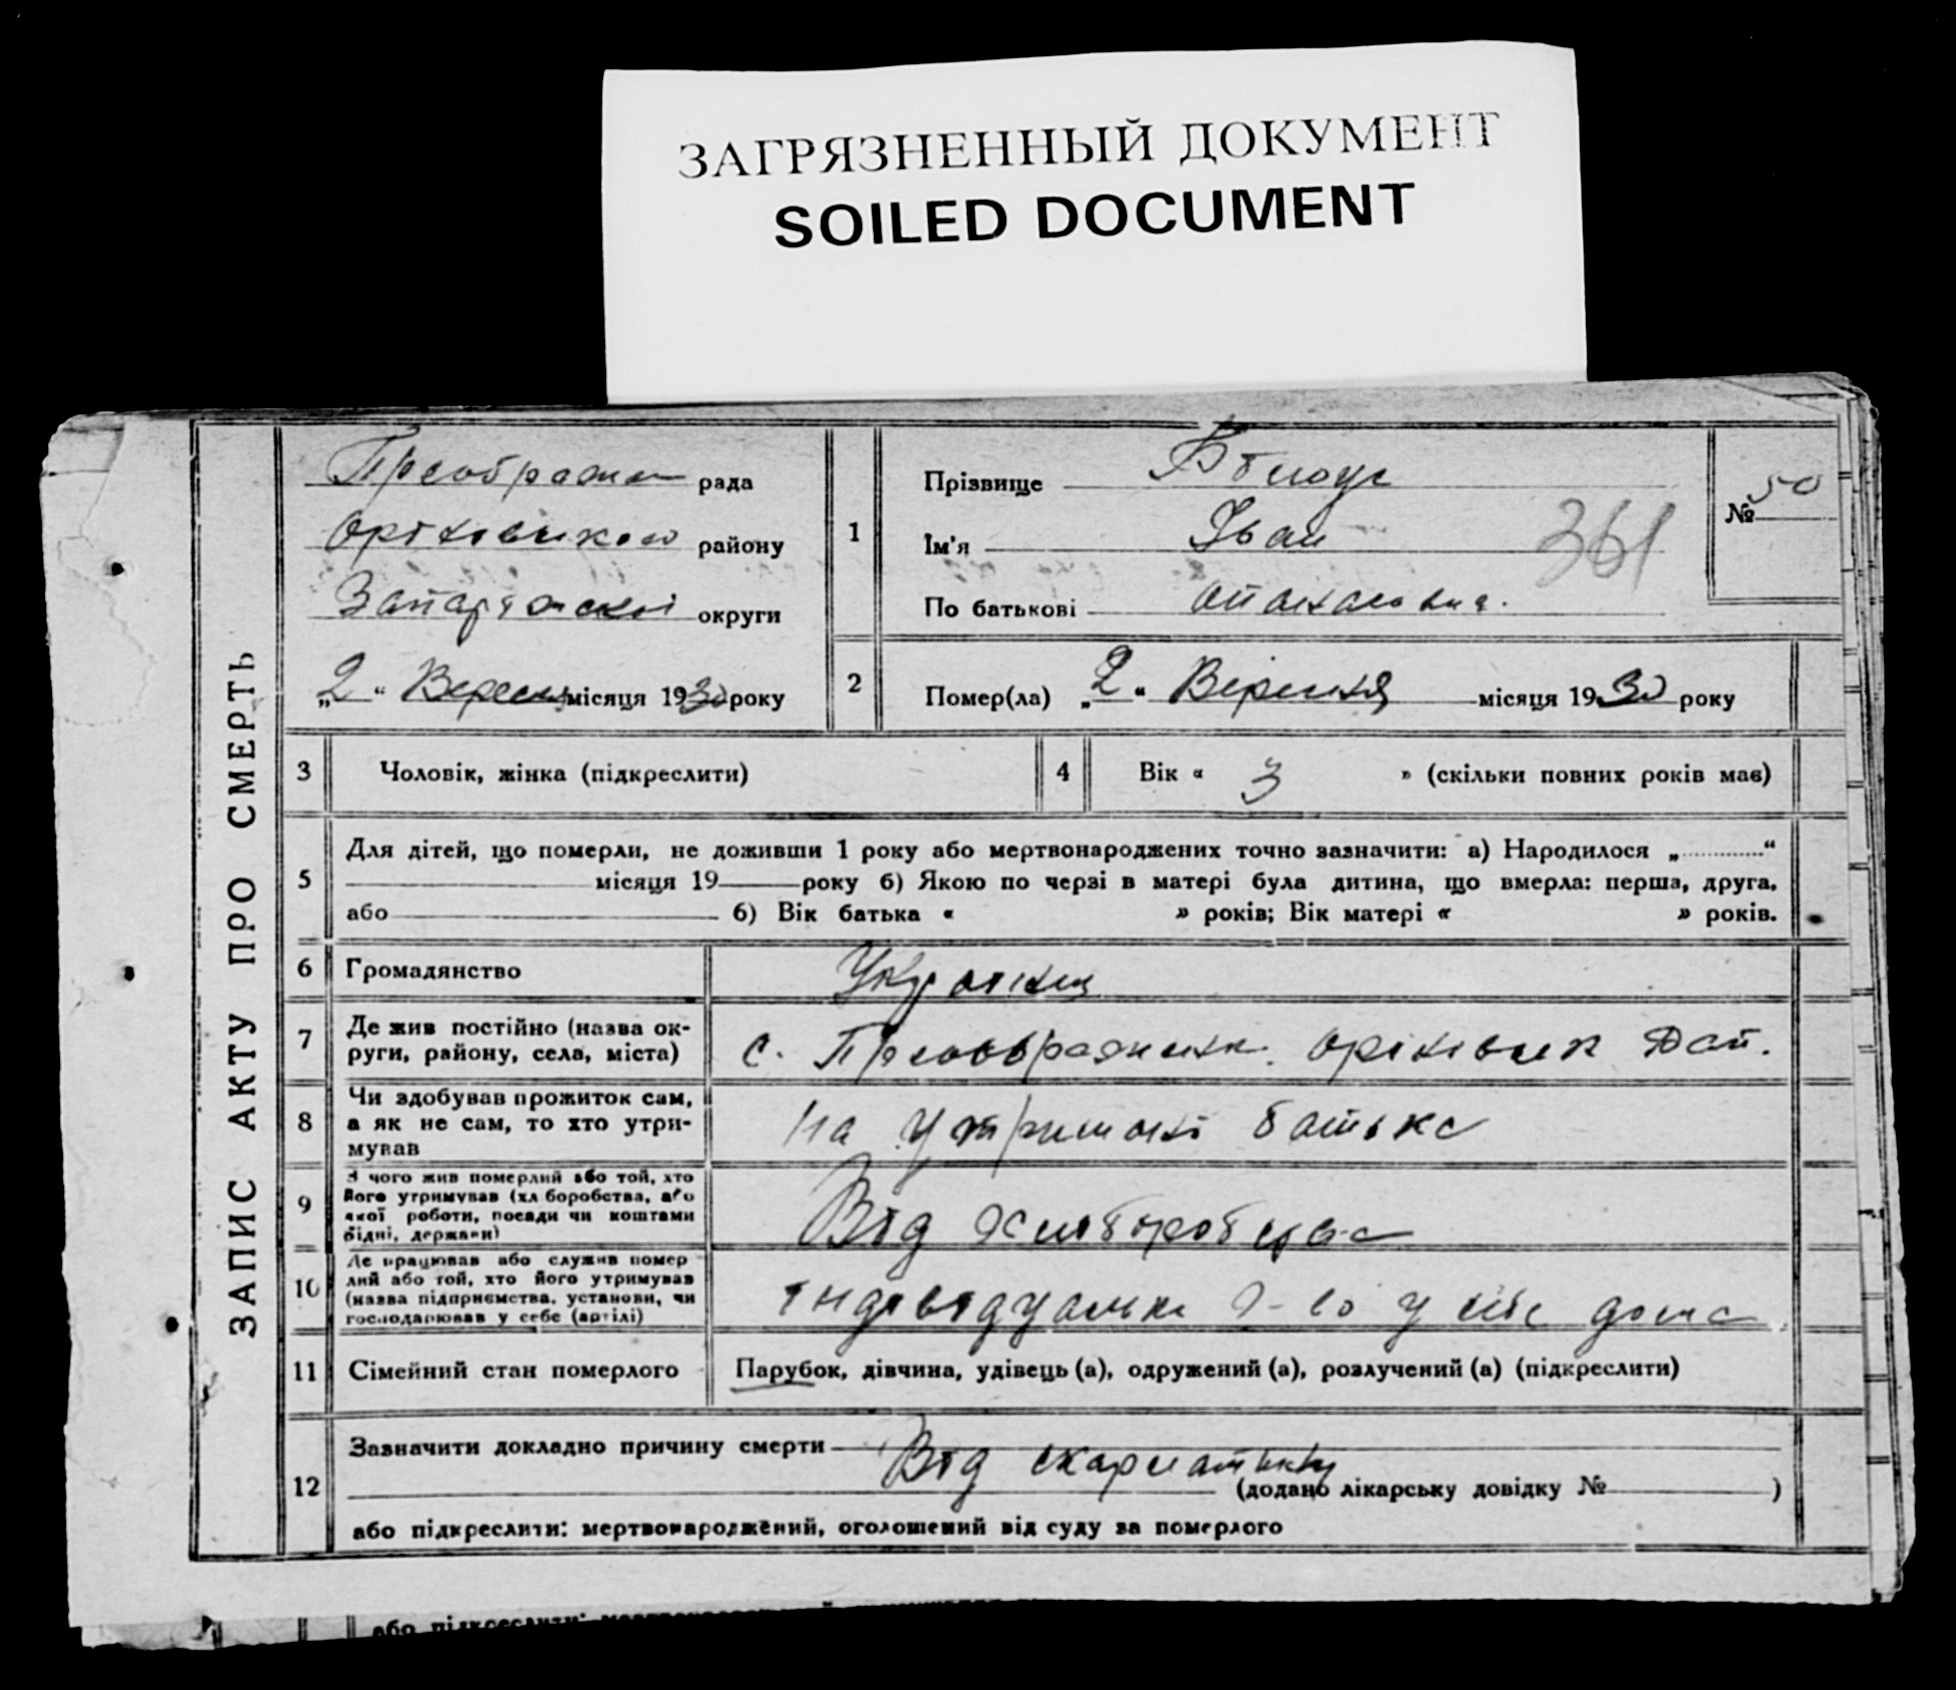 ЗАГРЯЗНЕННЫЙ ДОКУМЕНТ
SOILED DOCUMENT
ЗАПИС АКТУ ПРО СМЕРТЬ
Преображен рада
Оріхівського району
Запоріжської округи
„2“ Вересня місяця 1930 року
1
Прізвище Білоус
Ім'я Іван
По батькові
361
№ 50
2 Помер(ла) „2“ Вересня місяця 1930 року
3 Чоловік, жінка (підкреслити)
4 Вік « 3 » (скільки повних років має)
5 Для дітей, що померли, не доживши 1 року або мертвонароджених точно зазначити: а) Народилося „ “
місяця 19 року б) Якою по черзі в матері була дитина, що вмерла: перша, друга,
або б) Вік батька « » років; Вік матері « » років.
6 Громадянство Українец
7 Де жив постійно (назва ок-
руги, району, села, міста) с. Преображенка. Оріхівск Рай.
8 Чи здобував прожиток сам,
а як не сам, то хто утри-
мував На утриманні батька
9 З чого жив померлий або той, хто
його утримував (хліборобства, або
якої роботи, посади чи коштами
рідні, держави) Від хліборобства
10 Де працював або служив помер
лий або той, хто його утримував
(назва підприємства, установи, чи
господарював у себе (артілі) індівідуальне
11 Сімейний стан померлого Парубок, дівчина, удівець (а), одружений (а), розлучений (а) (підкреслити)
12 Зазначити докладно причину смерти Від скарлатини
(додано лікарську довідку № )
або підкреслити: мертвонароджений, оголошений від суду за померлого
або підкреслити: